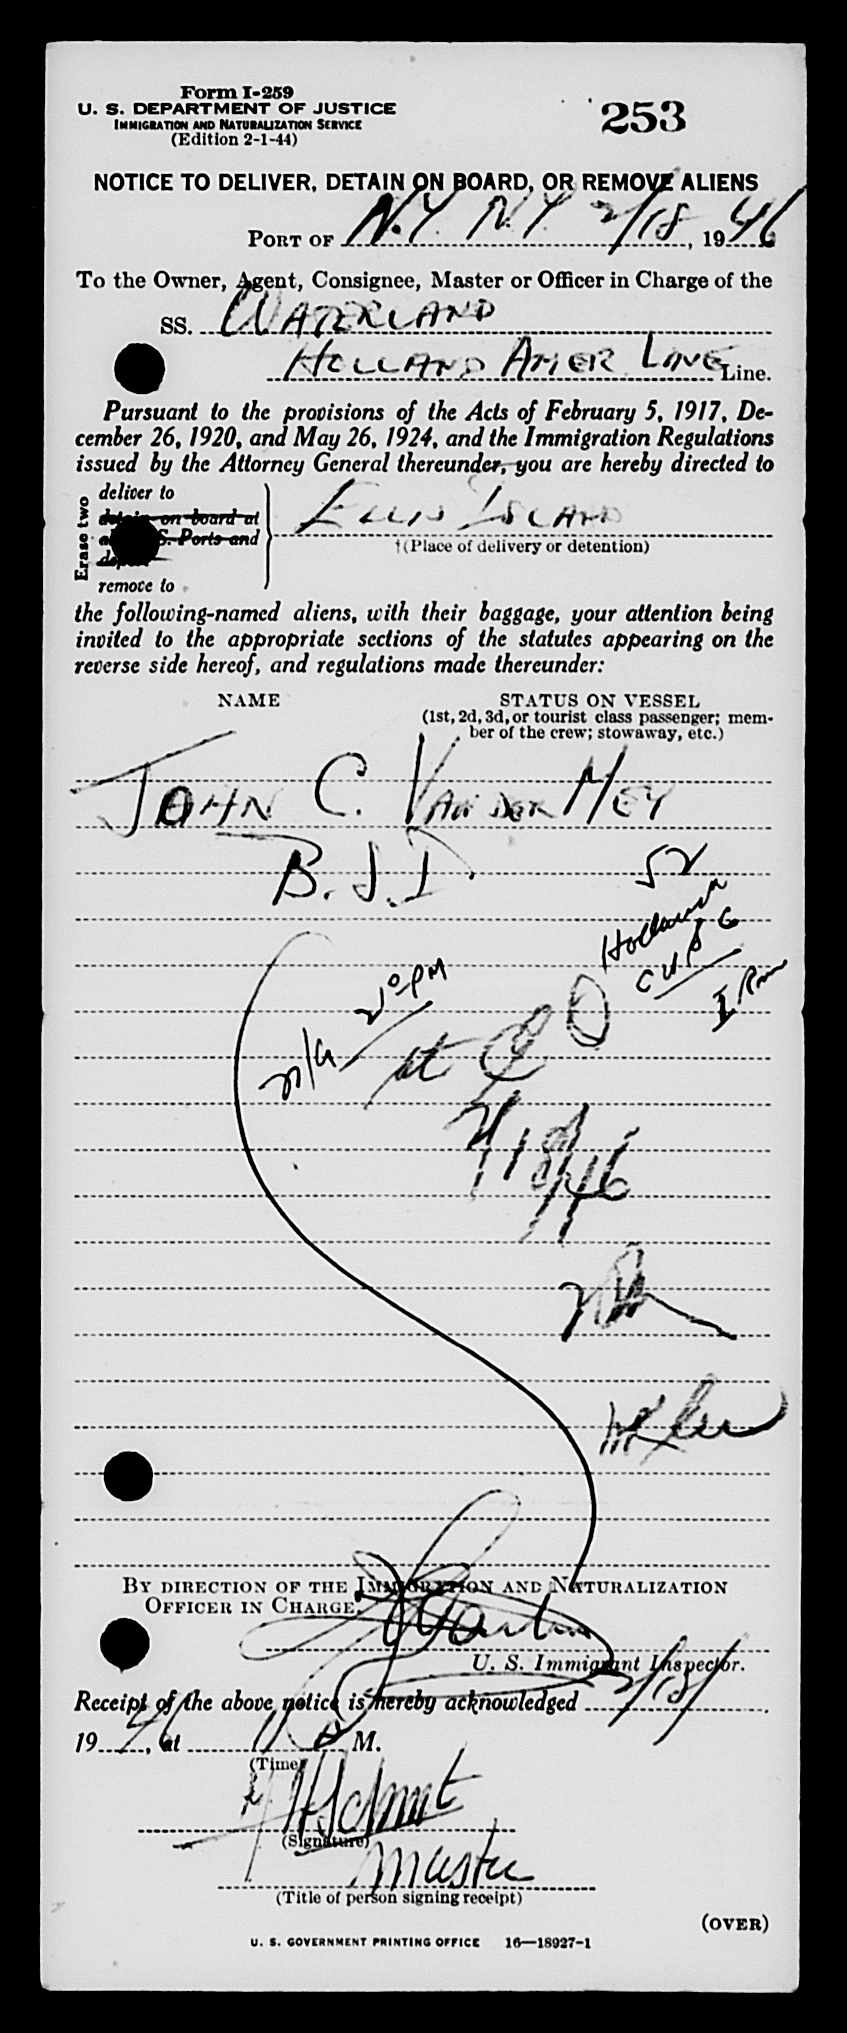 Form I-259
U. S. DEPARTMENT OF JUSTICE
IMMIGRATION AND NATURALIZATION SERVICE
(Edition 2-1-44)
253
NOTICE TO DELIVER, DETAIN ON BOARD, OR REMOVE ALIENS
PORT OF N.Y. N.Y. 2/18, 1946
To the Owner, Agent, Consignee, Master or Officer in Charge of the
SS. WATERLAND
HOLLAND AMER LINE Line.
Pursuant to the provisions of the Acts of February 5, 1917, De-
cember 26, 1920, and May 26, 1924, and the Immigration Regulations
issued by the Attorney General thereunder, you are hereby directed to
Erase two
deliver to
detain on board at
S. Ports and
remove to
ELLIS ISLAND
†(Place of delivery or detention)
the following-named aliens, with their baggage, your attention being
invited to the appropriate sections of the statutes appearing on the
reverse side hereof, and regulations made thereunder:
NAME
STATUS ON VESSEL
(1st, 2d, 3d, or tourist class passenger; mem-
ber of the crew; stowaway, etc.)
JOHN C. VAN DER MEY
B.S.I.
52
2/18/46
BY DIRECTION OF THE IMMIGRATION AND NATURALIZATION
OFFICER IN CHARGE.
U. S. Immigrant Inspector.
Receipt of the above notice is hereby acknowledged 2/18/
1946, at 11 A M.
(Time)
(Signature)
Master
(Title of person signing receipt)
(OVER)
U. S. GOVERNMENT PRINTING OFFICE 16—18927-1